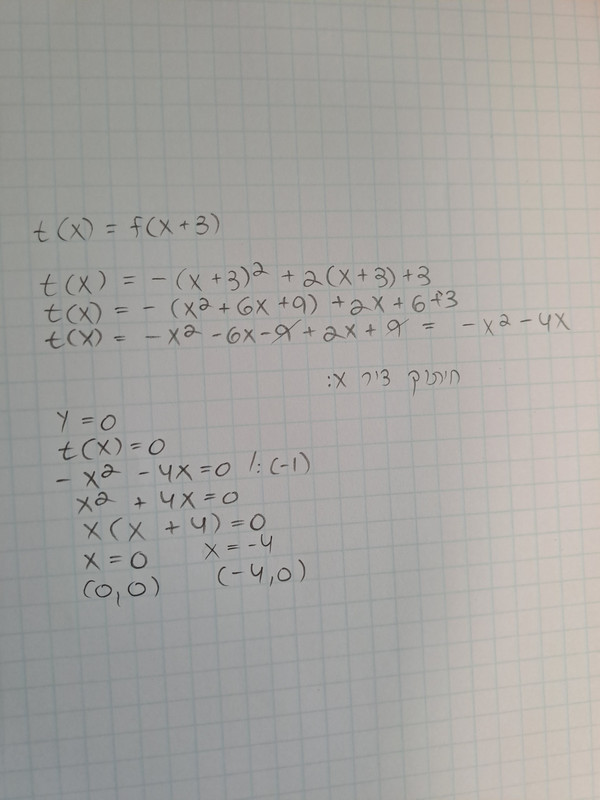 t(x) = f(x+3)
t(x) = -(x+3)² + 2(x+3)+3
t(x) = -(x²+6x+9) +2x+6+3
t(x) = -x²-6x-9+2x+9 = -x²-4x
חיתוך ציר x:
y=0
t(x)=0
-x²-4x=0 /:(-1)
x²+4x=0
x(x+4)=0
x=0 x=-4
(0,0) (-4,0)